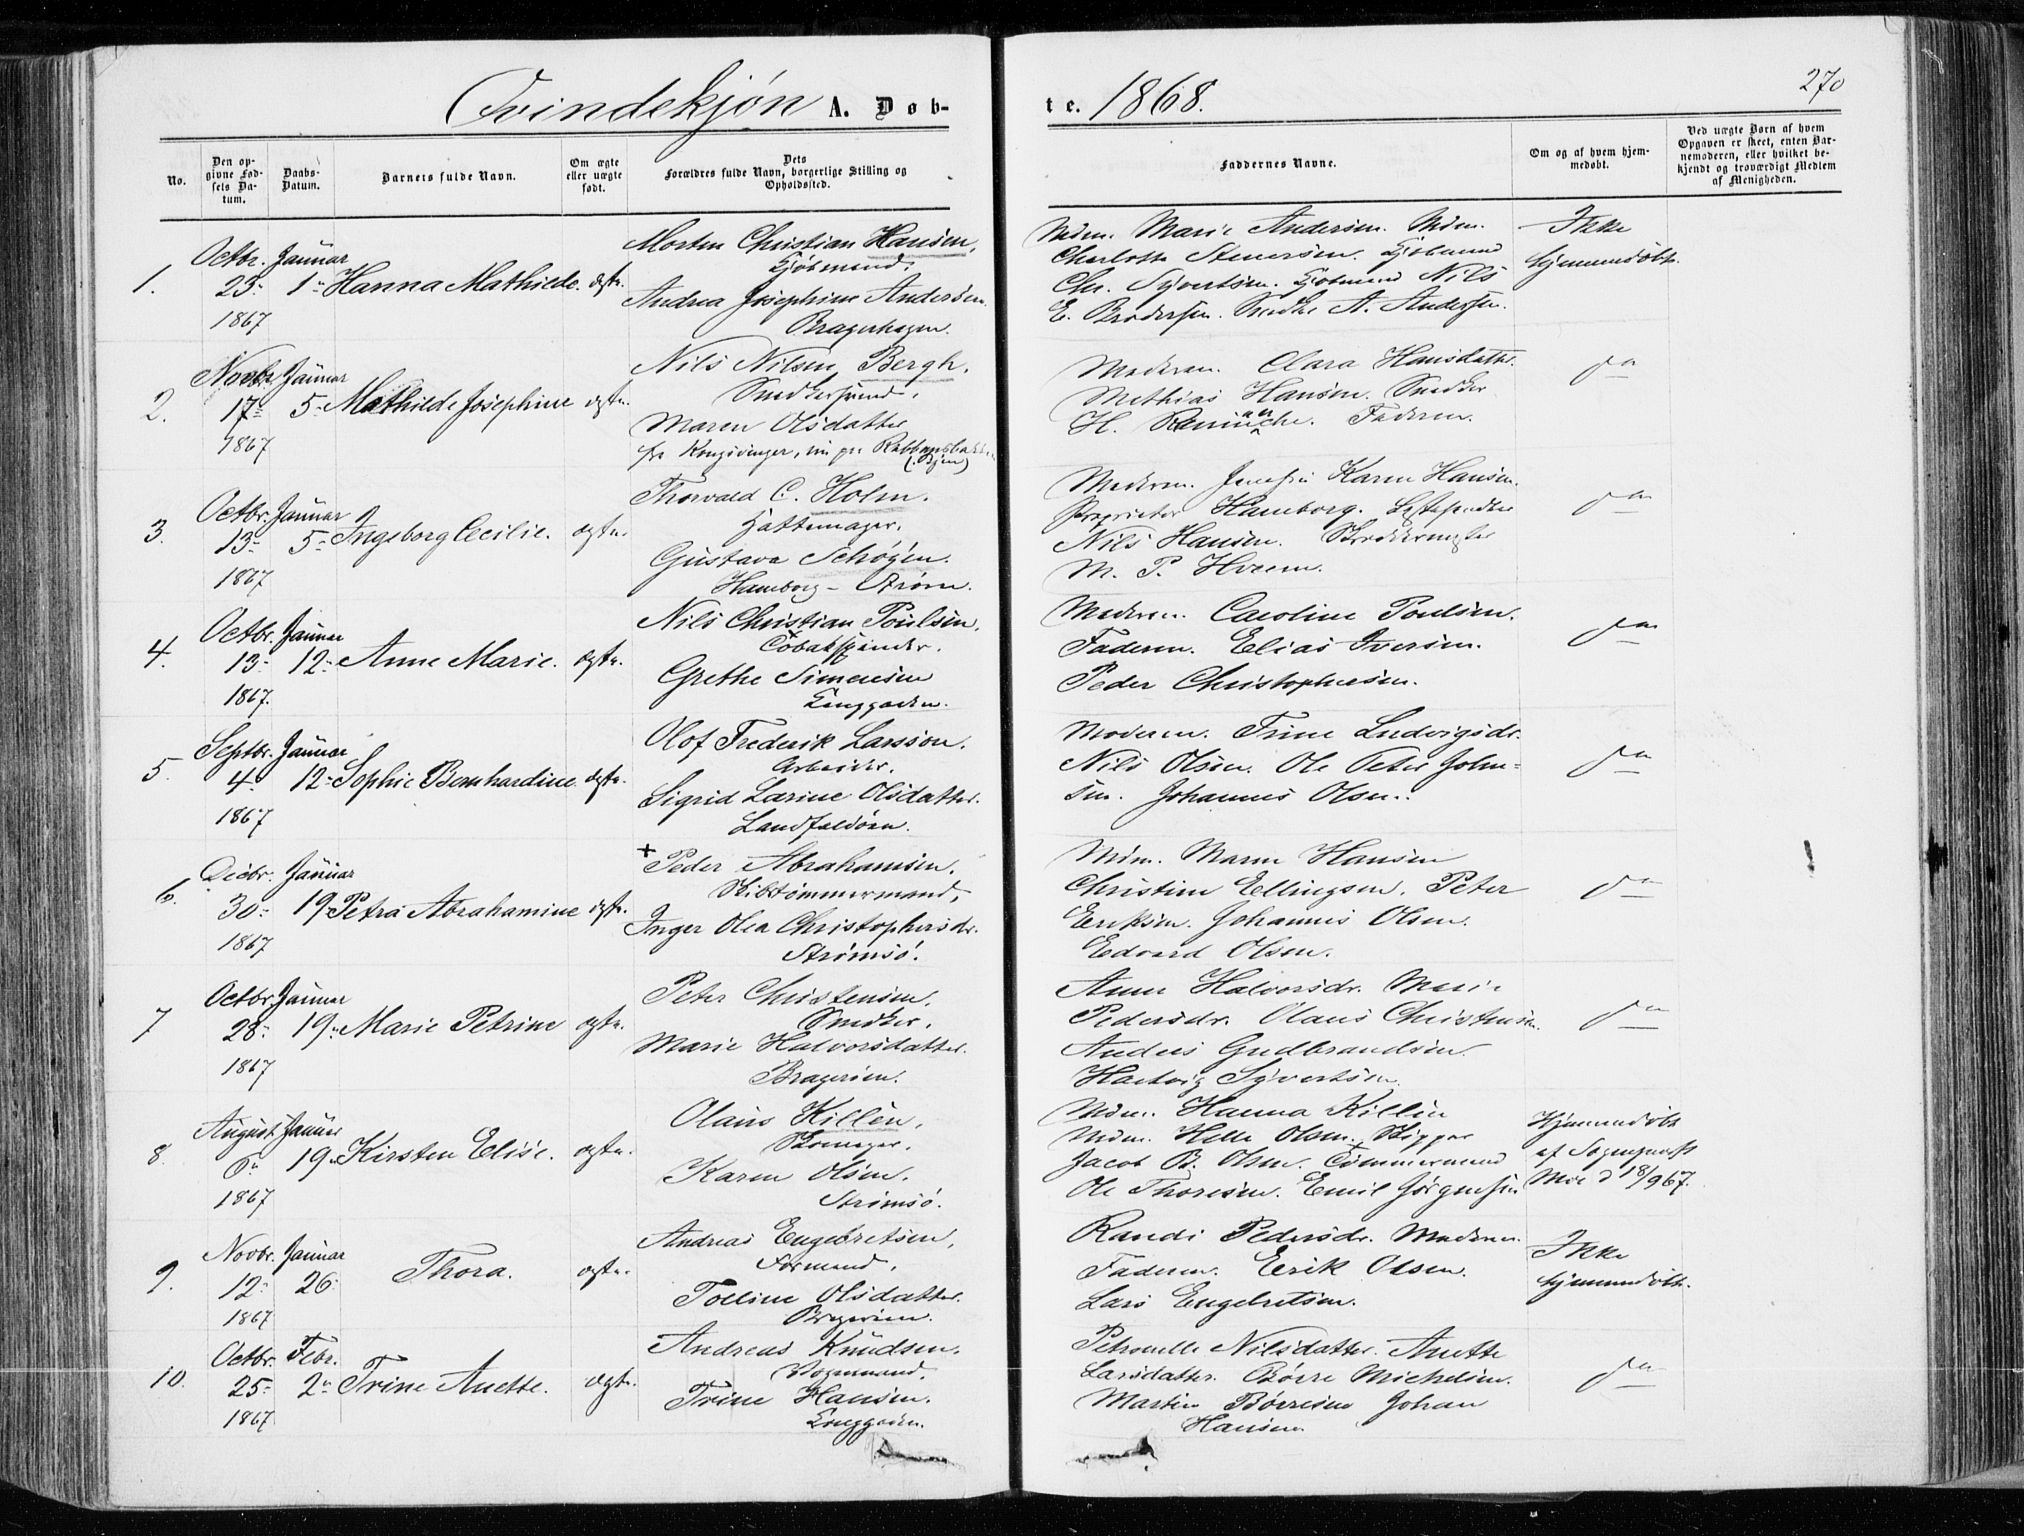 270
Qvindekjøn A. Døb-
te. 1868.
No.
Den op-
givne Fød-
sels Da-
tum.
Daabs-
Datum.
Barnets fulde Navn.
Om ægte
eller uægte
født.
Dets
Forældres fulde Navn, borgerlige Stilling og
Opholdssted.
Faddernes Navne.
Om og af hvem hjem-
medøbt.
Ved uægte Børn af hvem
Opgaven er skeet, enten Bar-
nemoderen, eller hvilket be-
kjendt og troværdigt Medlem
af Menigheden.
1. Octbr. 23 1867 Januar 1 Hanna Mathilde. ægte.
Morten Christian Hansen,
Kjøbmand,
Andrea Josephine Andersen.
Bragerhagen.
Mdm. Marie Andersen. Mdm.
Charlotte Stenersen. Kjøbmand
Chr. Syvertsen. Kjøbmand Nils
E. Brodersen. Snedker A. Andersen.
Ikke
hjemmedøbt.
2. Novbr. 17 1867 Januar 5 Mathilde Josephine ægte.
Nils Nilsen Bergh.
Snedkersvend,
Maren Olsdatter
fra Kongsvinger, nu paa
Moderen. Clara Hansdatter.
Mathias Hansen. Snedker
H. Faderen.
do
3. Octbr. 13 1867 Januar 5 Ingeborg Cecilie. ægte.
Thorvald C. Holm.
Hattemager.
Gustava Schøyen.
Hamborg - Strøm.
Moderen. Karen Hansen.
Proprietær Hamborg.
Nils Hansen.
M. P. Hveem.
do
4. Octbr. 13 1867. Januar 12 Anne Marie. ægte.
Nils Christian Poulsen.
Tobakspinder.
Grethe Simensen
Langgaden.
Moderen. Caroline Poulsen.
Faderen. Elias Iversen.
Peder Christophersen.
do
5. Septbr. 4 1867 Januar 12 Sophie Bernhardine ægte.
Olof Frederik Larsson.
Arbeider.
Sigrid Larine Olsdatter.
Landfaldøen.
Moderen. Trine Ludvigsdr.
Nils Olsen. Ole Peter John-
sen. Johannes Olsen.
do
6. Decbr. 30 1867 Januar 19 Petra Abrahamine ægte.
+ Peder Abrahamsen.
Skibtømmermand,
Inger Olea Christophersdr.
Strømsø.
Mdm. Maren Hansen
Christine Ellingsen. Peter
Eriksen. Johannes Olsen.
Edvard Olsen.
do
7 Octbr. 28 1867 Januar 19 Marie Petrine ægte.
Peter Christensen.
Snedker.
Marie Halvorsdatter.
Bragerøen.
Anne Halvorsdr. Marie
Pedersdr. Olaus Christensen.
Anders Gudbrandsen.
Hartvig Syvertsen.
do
8. August 6 1867 Januar 19 Kirsten Elise. ægte.
Olaus Killen.
Skomager.
Karen Olsen.
Strømsø.
Mdm. Hanna Killen
Mdm. Helle Olsen. Skipper
Jacob B. Olsen. Tømmermand
Ole Thoresen. Emil Jørgensen
Hjemmedøbt
af Sognepræst
Moe d 18/9 67.
9. Novbr. 12 1867 Januar 26 Thora. ægte.
Andreas Engebretsen,
Formand,
Tolline Olsdatter.
Bragerøen.
Randi Pedersdr. Moderen.
Faderen. Erik Olsen.
Lars Engebretsen.
Ikke
hjemmedøbt.
10. Octbr. 25 1867 Febr. 2 Trine Anette. ægte.
Andreas Knudsen.
Vognmand.
Trine Hansen.
Langgaden.
Petronelle Nilsdatter. Anette
Larsdatter. Børre Michelsen.
Martin Børresen Johan
Hansen
do